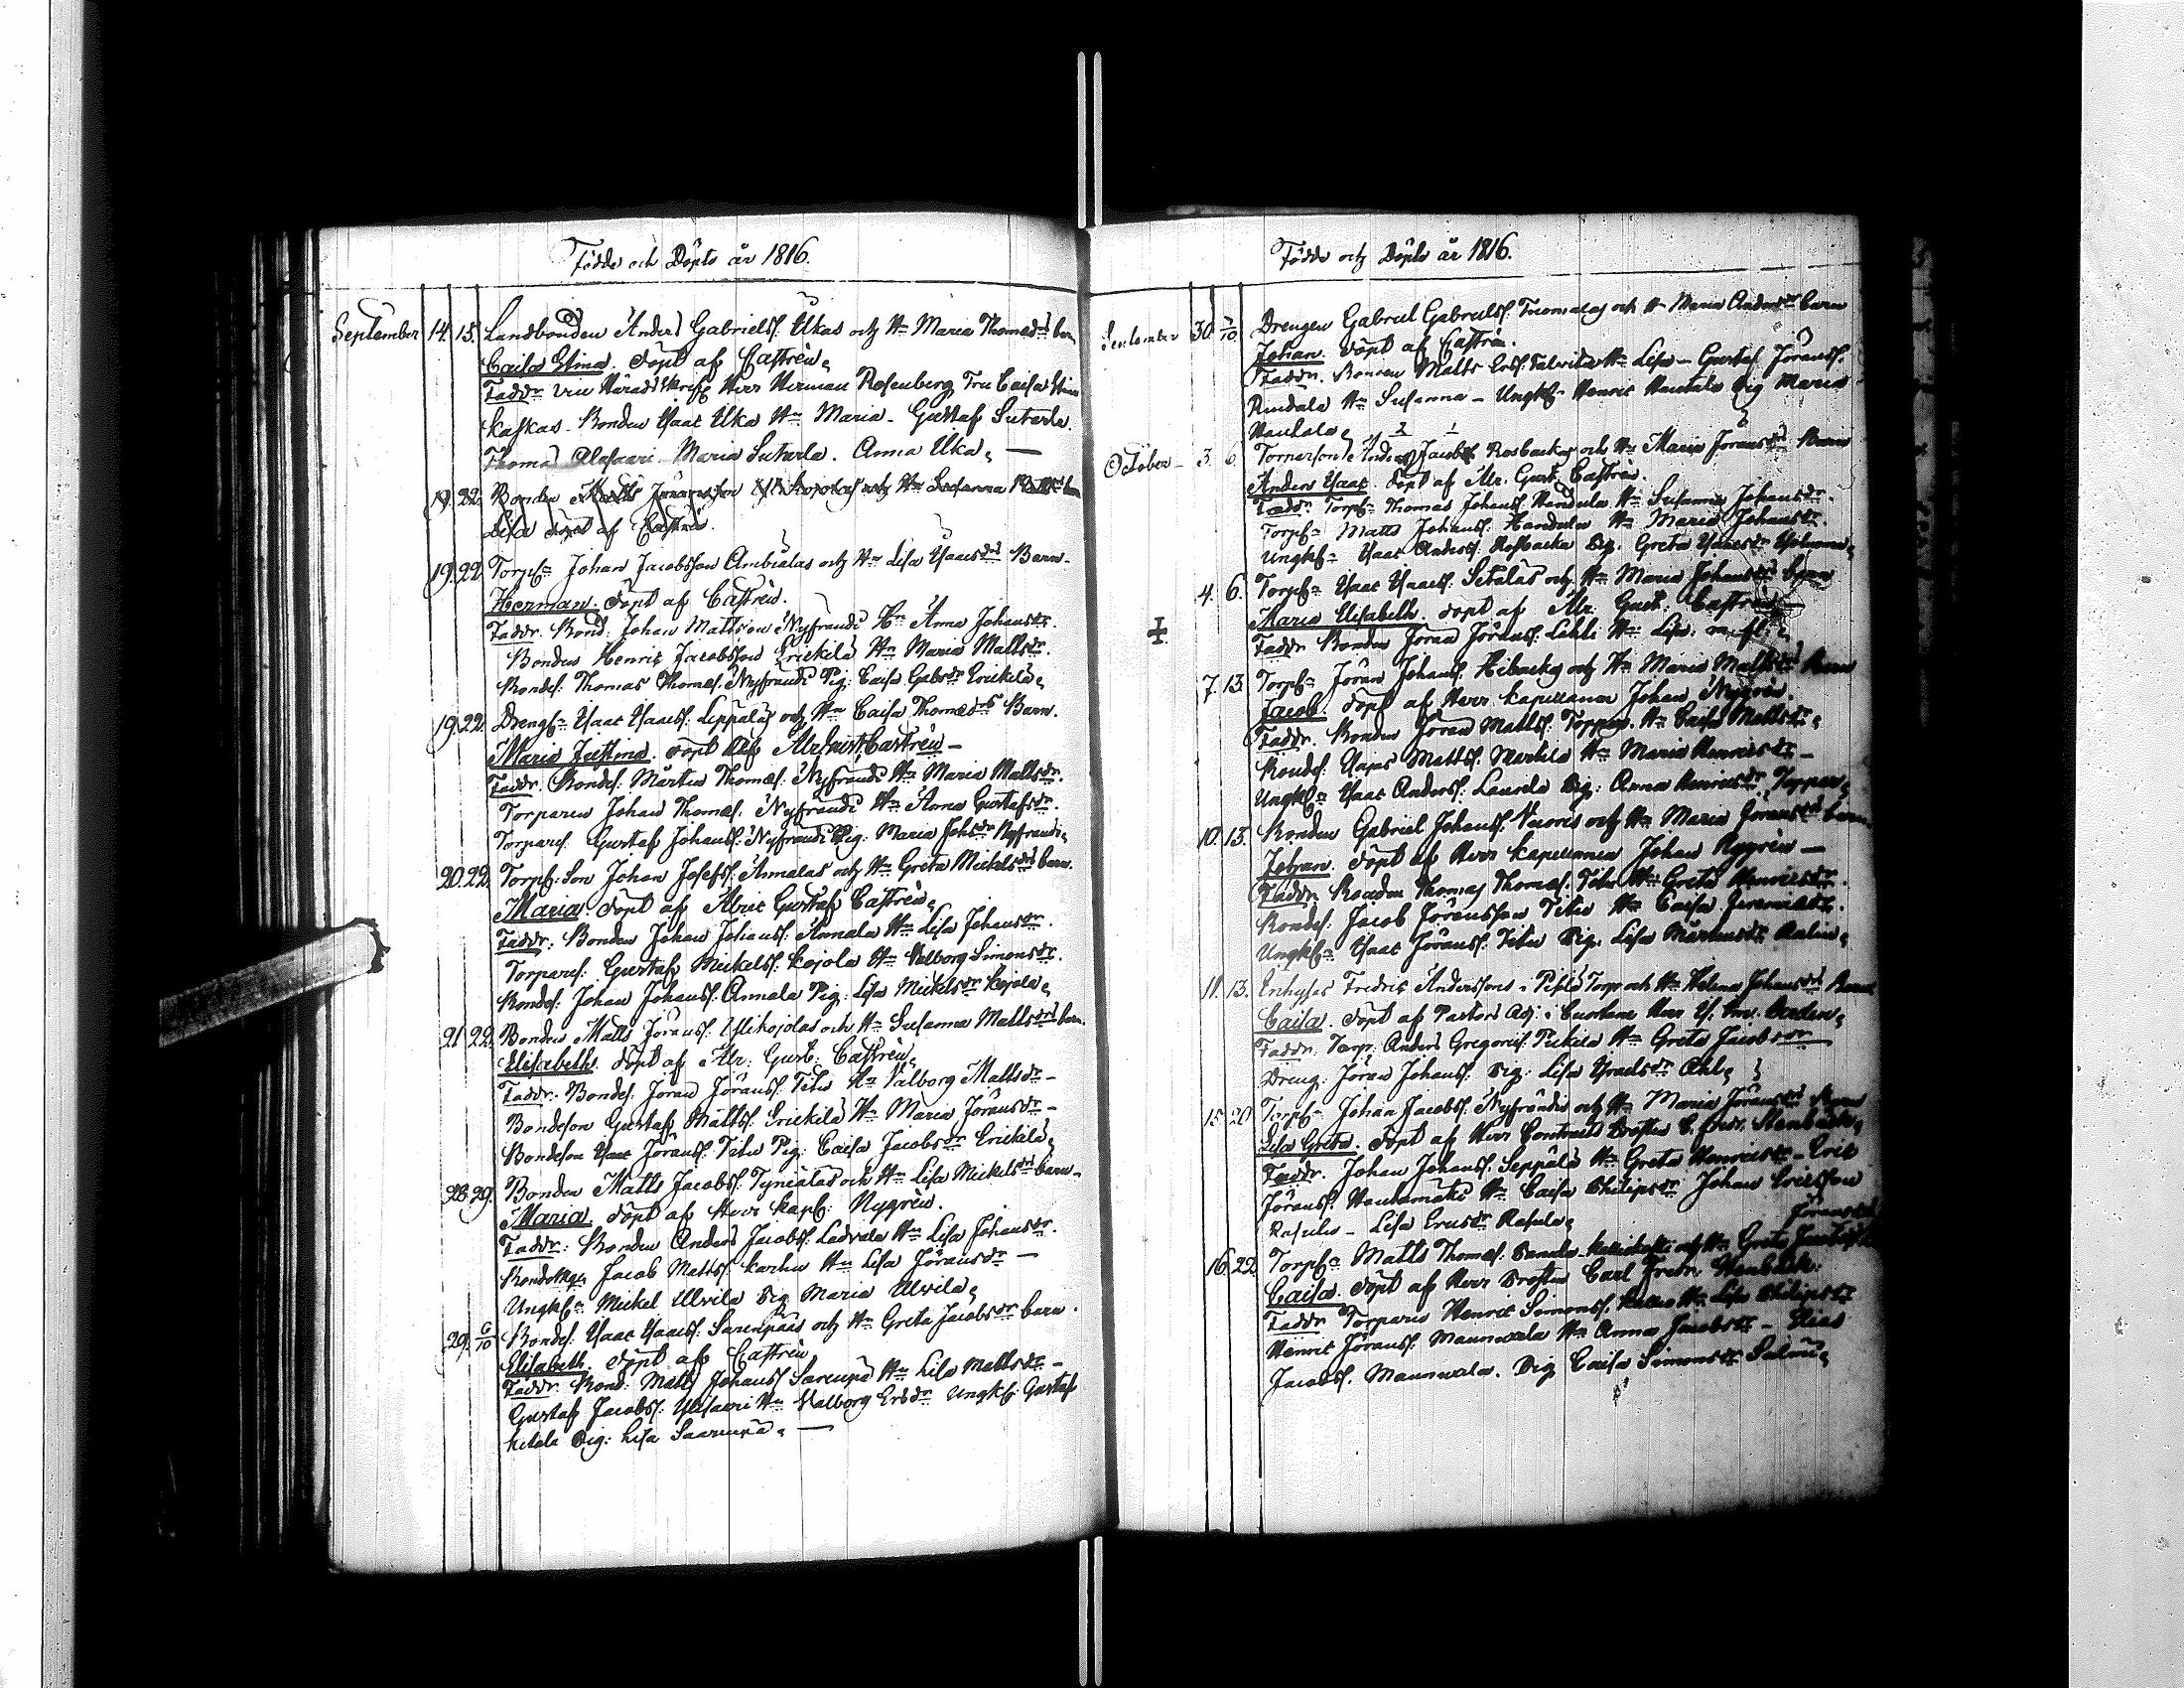 Födde och Döpte år 1816.
September 14. 15. Landbonden Anders Gabrielss. Ukas och Hn Maria Thomædrs barn
Caisa Stina. döpt af Castrèn.
Faddr. Herr Herman Rosenberg, Fru Caisa Stina
Kaskas - Bonden Isaac Uka Hn Maria - Gustaf Sutarla.
Thomas Alasaari. Maria Sutarla. Anna Uka. —
19. 22. Bonden Matts Jöransson och Hn Susanna barn
Lisa döpt af Castrèn.
19. 22. Torpn Johan Jacobsson Ambialas och Hn Lisa Isaacsdrs Barn.
Herman. döpt af Castrèn.
Faddr. Bond: Johan Mattsson Nyfrandi Hn Anna Johansdr.
Bonden Henric Jacobsson Erickilä Hn Maria Mattsdr.
Bondes: Thomas Thomæs. Nyfrandi Pig: Caisa Gabrdr Erickilä.
19. 22. Drengn Isaac Isaacss. Leppälas och Hn Caisa Thomædrs Barn.
Maria Justina. döpt af Alr Gust: Castrèn —
Faddr. Bondes: Mårten Thomæs. Nyfrandi Hn Maria Mattsdr.
Torparen Johan Thomæs. Nyfrandi Hn Anna Gustafsdr.
Torpares. Gustaf Johanss. Nyfrandi Pig. Maria Johsdr Nyfrandi.
20. 22. Torpn: Son Johan Josefss. Annalas och Hn Greta Mickelsdrs barn.
Maria. döpt af Gustaf Castrèn.
Faddr: Bonden Johan Johanss. Annala Hn Lisa Johansdr.
Torpares. Gustaf Mickelss. Kojola Hn Valborg Simonsdr.
Bondes. Johan Johanss. Annala Pig: Lisa Mickelsdr Kojola.
21. 22. Bonden Matts Jöranss. Ylikojolas och Hn Susanna Mattsdrs barn.
Elisabeth. döpt af Alr: Gust: Castrèn.
Faddr: Bondes. Jöran Jöranss. Titu Hn Valborg Mattsdr —
Bondeson Gustaf Mattss. Erickilä Hn Maria Jöransdr —
Bondeson Isaac Jöranss. Titu Pig: Caisa Jacobsdr Erickilä.
28. 29. Bonden Matts Jacobss. Tynialas och Hn Lisa Mickelsdrs barn.
Maria. döpt af Herr Kapl: Nygrèn.
Faddr: Bonden Anders Jacobss. Ladvala Hn Lisa Johansdr.
Jacob Mattss. Karhu Hn Lisa Jöransdr —
Ungkn Mickel Ulvila Pig Maria Ulvila.
29. 6/10 Bondes. Isaac Isaacss. Sarenpääs och Hn Greta Jacobsdr barn.
Elisabeth. döpt af Castrèn
Faddr. Bond: Matts Johanss Hn Lisa Mattsdr —
Gustaf Jacobss. Ylisaari Hn Valborg Ersdr Ungk: Gustaf
Ketola Pig: Lisa
Födde och Döpte år 1816.
September 30. 7/10 Drengen Gabriel Gabrielss. Tuomalas och Hn Maria Andersdr barn
Johan. döpt af Castrèn.
Faddr. Bonden Matts Hn Lisa — Gustaf Jöranss.
Hn Susanna — Ungk: Henric Hautala Pig Maria
Hautala.
October — 3. 6. Anders Jacobss. Rosbackas och Hn Maria Jöransdrs Barn
Anders Isaac. döpt af Alr. Gust. Castrèn.
Faddr. Torpn Thomas Johanss. Handula Hn Susanna Johansdr.
Torpn Matts Johanss. Handula Hn Maria Johansdr.
Ungkn Isaac Anderss. Rosbacka Pig. Greta Isaacsdr
4. 6. Torpn Isaac Isaacss. Setälas och Hn Maria Johansdr barn
Maria Elisabeth. döpt af Alr: Gust: Castrèn —
Faddr Bonden Jöran Jöranss. Lehti Hn Lisa: m. fl.
7. 13. Torpn Jöran Johanss. och Hn Maria Mattsdrs Barn
Jacob. döpt af Herr Kapellanen Johan Nygrèn.
Faddr. Bonden Jöran Mattss. Toppari Hn Caisa Mattsdr.
Bondes. Mattss. Markila Hn Maria Henricsdr —
Ungkn Isaac Anderss. Laurila Pig: Anna Henricsdr Toppari.
10. 13. Bonden Gabriel Johanss. Vuoris och Hn Maria Jöransdrs barn.
Johan. döpt af Herr Kapellanen Johan Nygrèn —
Faddr Bonden Thomas Thomæs. Titu Hn Greta Henricsdr.
Bondes. Jacob Jöransson Titu Hn Caisa
Ungkn Isaac Jöranss. Titu Pig. Lisa Mårtensdr
11. 13. Inhyses Fredric Anderssons i Torp och Hn Helena Johansdrs Barn
Caisa. döpt af Pastors Adj: i Herr
Faddr. Torp: Anders Gregorius. Hn Greta Jacobsdr
Dreng: Jöran Johanss. Pig: Lisa
15. 20. Torpn Johan Jacobss. Nyfrandis och Hn Maria Jöransdrs Barn
Lisa Greta. döpt af Herr Contracts Prosten C. Fredr. Stenbäck.
Faddr. Johan Johanss. Seppälä Hn Greta Henricsdr — Eric
Jöranss. Hautamäki Hn Caisa Philipsdr Johan Ericsson
Rasulu — Lisa Ericsdr Rasula.
16. 22. Torpn Matts Thomæs. och Hn Greta Jöransdr
Caisa. döpt af Herr Prosten Carl Fredr. Stenbäck.
Faddr Torparen Henric Simonss. Hn Lisa Philipsdr
Henric Jöranss. Maunuxela Hn Anna Jacobsdr — Elias
Jacobss. Maunuxela. Pig Caisa Simonsdr